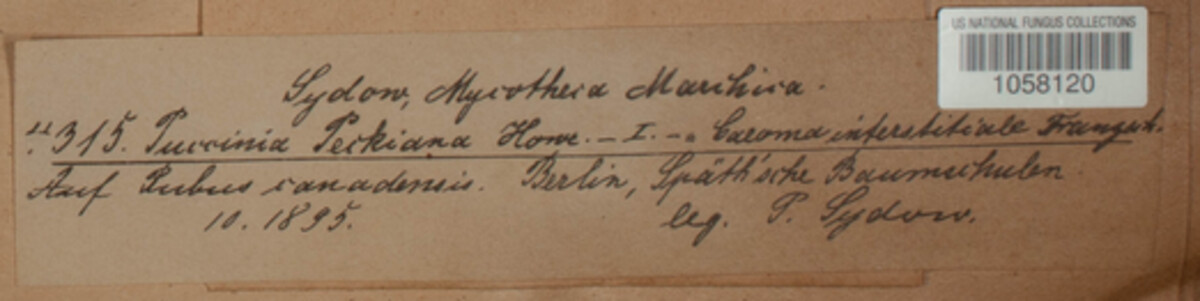 US NATIONAL FUNGUS COLLECTIONS
1058120
Sydow, Mycotheca Marchica.
315. Puccinia Peckiana Howe. – I. – Caeoma interstitiale
Auf Rubus canadensis. Berlin, Späth'sche Baumschulen.
10. 1895. leg. P. Sydow.